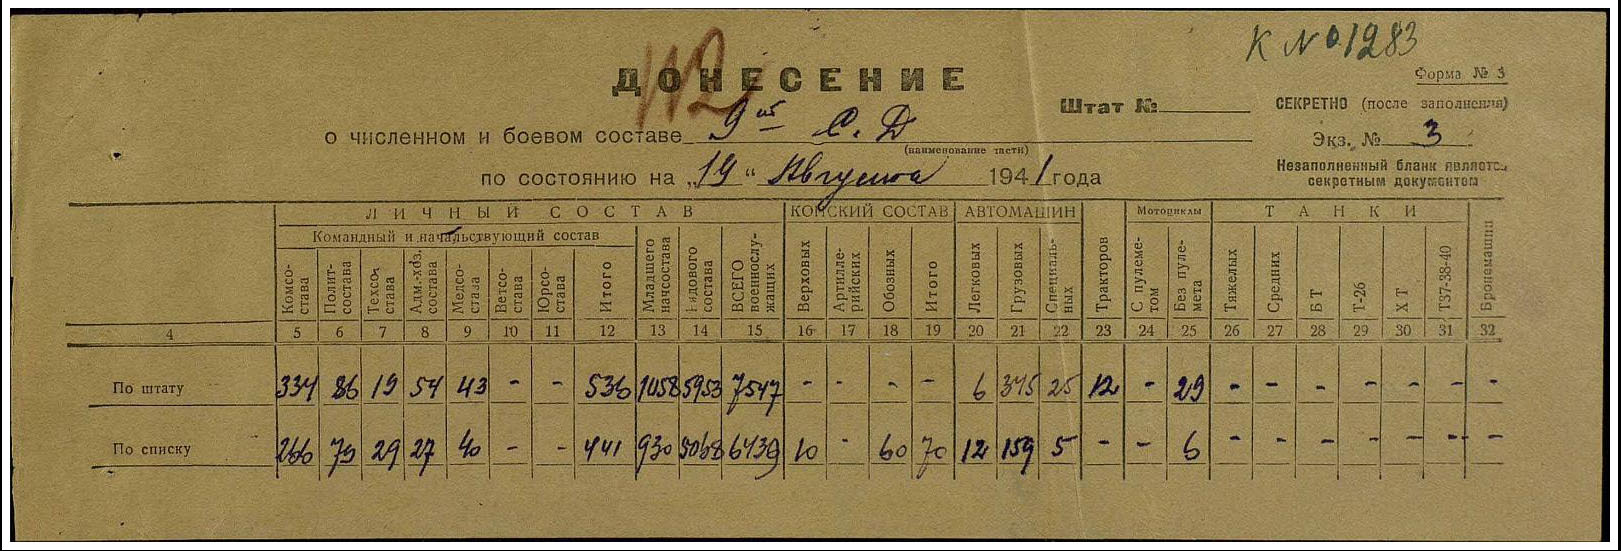 К № 01283
112
ДОНЕСЕНИЕ
Форма № 3
Штат №
СЕКРЕТНО (после заполнения)
о численном и боевом составе 9ой С. Д
(наименование части)
Экз. № 3
по состоянию на „19“ Августа 1941 года
Незаполненный бланк является
секретным документом
ЛИЧНЫЙ СОСТАВ КОНСКИЙ СОСТАВ АВТОМАШИН Тракторов Мотоциклы ТАНКИ Бронемашин
Командный и начальствующий состав Младшего начсостава Рядового состава ВСЕГО военнослужащих Верховых Артиллерийских Обозных Итого Легковых Грузовых Специальных С пулеметом Без пулемета Тяжелых Средних БТ Т-26 ХТ Т37-38-40
Комсостава Политсостава Техсостава Адм.-хоз. состава Медсостава Ветсостава Юрсостава Итого
4 5 6 7 8 9 10 11 12 13 14 15 16 17 18 19 20 21 22 23 24 25 26 27 28 29 30 31 32
По штату 334 86 19 54 43 - - 536 1058 5953 7547 - - - - 6 345 25 12 - 29 - - - - - - -
По списку 266 79 29 27 40 - - 441 930 5068 6439 10 - 60 70 12 159 5 - - 6 - - - - - - -